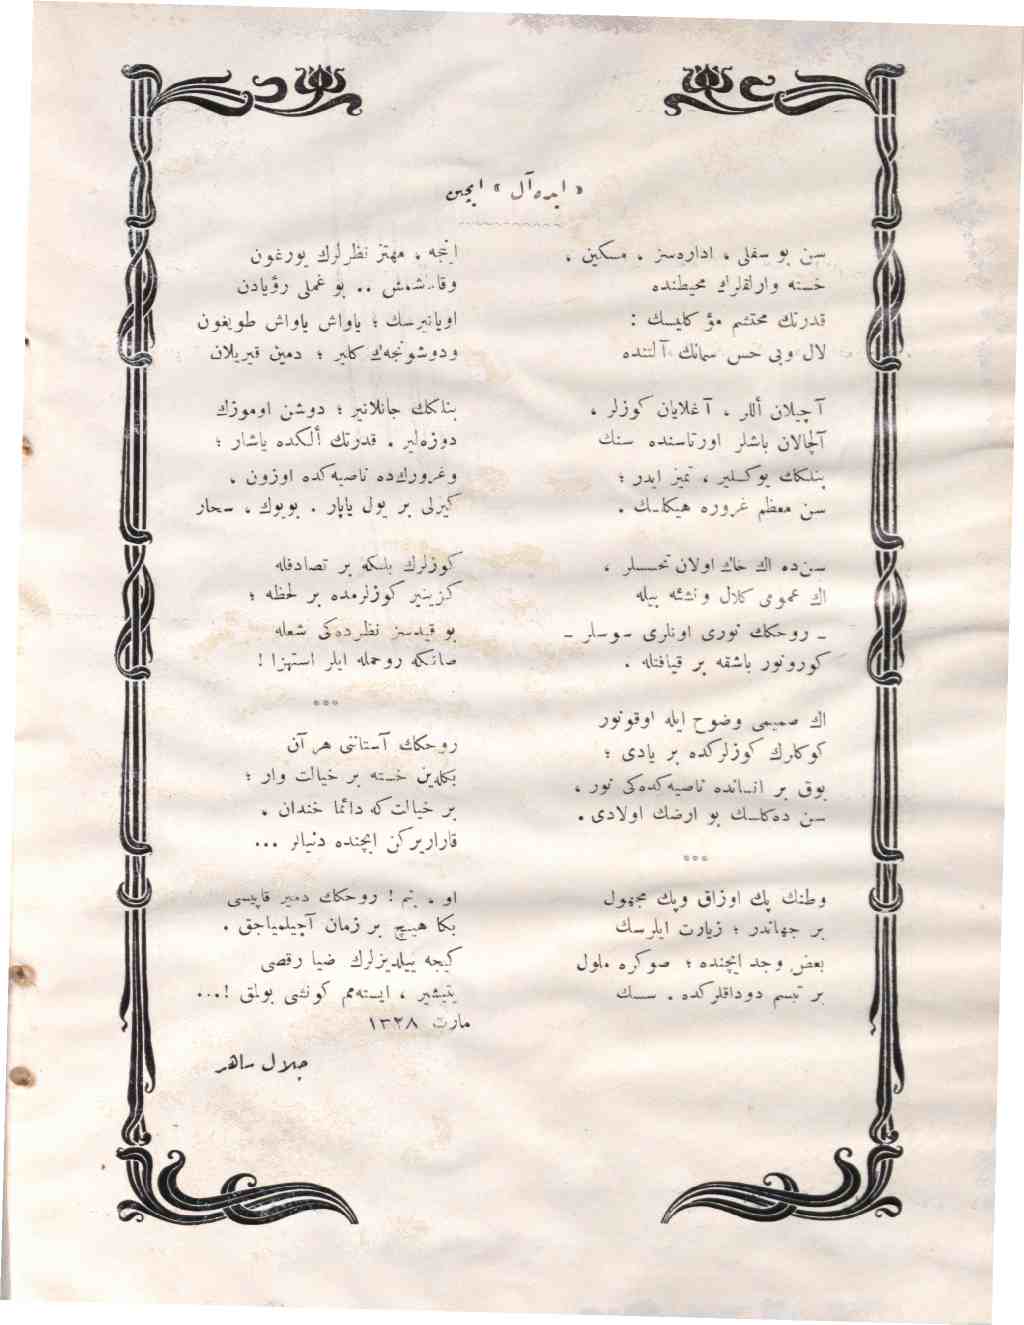 « ایده‌آل » ایچین
سن بو سفلی ، اداره‌سز ، مسکین ،
خسته وارلقلرك محیطنده
قدرتك محتشم مؤكلیسك :
لال وبی حس سمانك آلتنده
آچیلان أللر ، آغلایان كوزلر ،
آلچالان باشلر اورتاسنده سنك
بنلكك یوكسلیر ، تمیز ایدر ؛
سن معظم غروره هیكلسك .
سن‌ده اك خاك اولان تحسلر ،
اك عمومی كلال ونشئه بیله
ـ روحكك نوری اونلری سوسلر ـ
كورونور باشقه بر قیافتله .
اك صمیمی وضوح ایله اوقونور
كوكلرك كوزلركده بر یادی ؛
یوق بر انسانده ناصیه‌كده‌كی نور ،
سن دكلسك بو ارضك اولادی .
°°°
وطنك پك اوزاق وپك مجهول
بر جهاندر ؛ زیارت ایلرسك
بعض وجد ایچنده ؛ صوكره ملول
بر تبسم دوداقلركده . سسك
اینجه ، مهتز نظرلرك یورغون
وقاماشمش .. بو غملی رؤیادن
اویانیرسك ؛ یاواش یاواش طویغون
ودوشونجه‌ك كلیر ؛ دمین قیریلان
بنلكك جانلانیر ؛ دوشن اوموزك
دوزه‌لیر . قدرتك ألكده یاشار ؛
وغرورك‌ده ناصیه‌كده اوزون ،
كیزلی بر یول یاپار . بویوك ، سحار
كوزلرك بلكه بر تصادفله
كزینیر كوزلرمده بر لحظه ؛
بو قیدسز نظرده‌كی شعله
صانكه روحمله ایلر استهزا !
°°°
روحكك آستاننی هر آن
بكله‌ین خسته بر خیالت وار ؛
بر خیالت كه دائما خندان .
قاراریركن ایچنده دنیالر ...
او ، بنم ! روحكك دمیر قاپیسی
بكا هیچ بر زمان آچیلمیاجق .
كیجه ییلدیزلرك ضیا رقصی
یتیشیر ، ایسته‌مم كونشی بولمق !...
مارت ١٣٢٨
جلال ساهر